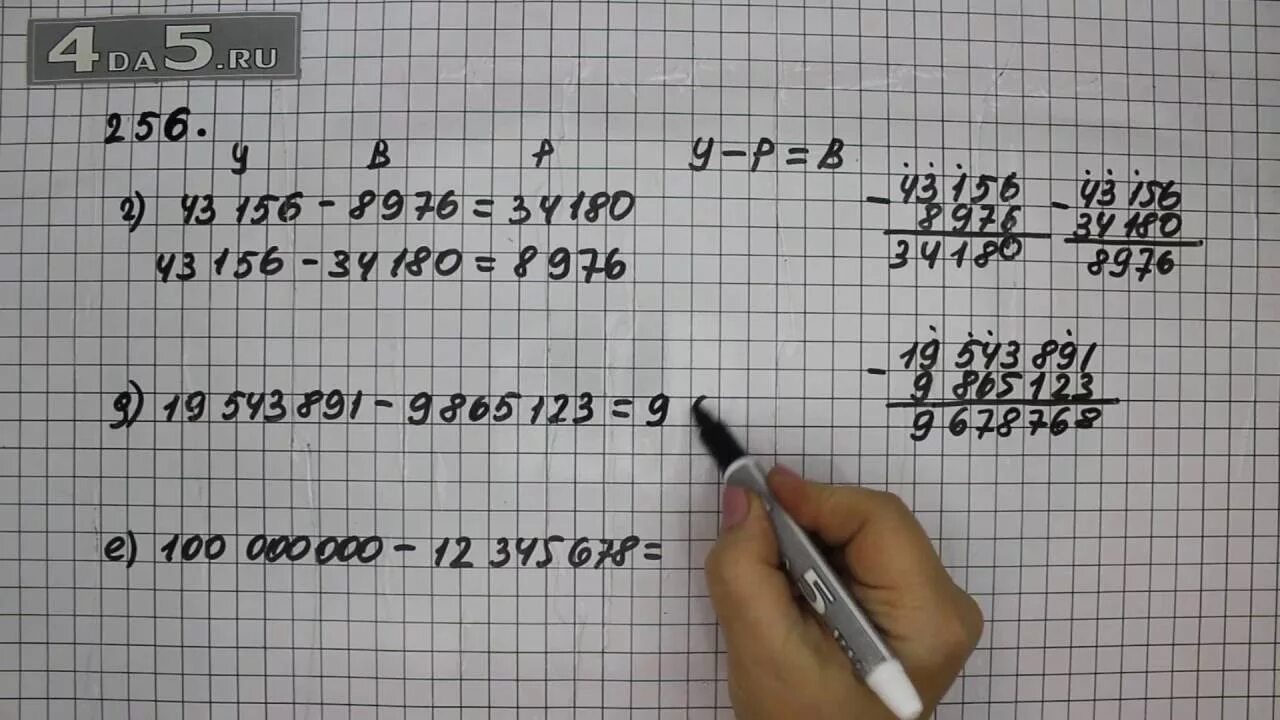 4DA5.RU
256.
У В Р У-Р=В
г) 43 156 - 8976 = 34180
43 156 - 34 180 = 8 976
- 43 156
8 976
34 180
- 43 156
34 180
8976
д) 19 543 891 - 9865 123 = 9
- 19 543 891
9 865 123
9 678 768
е) 100 000 000 - 12 345 678 =